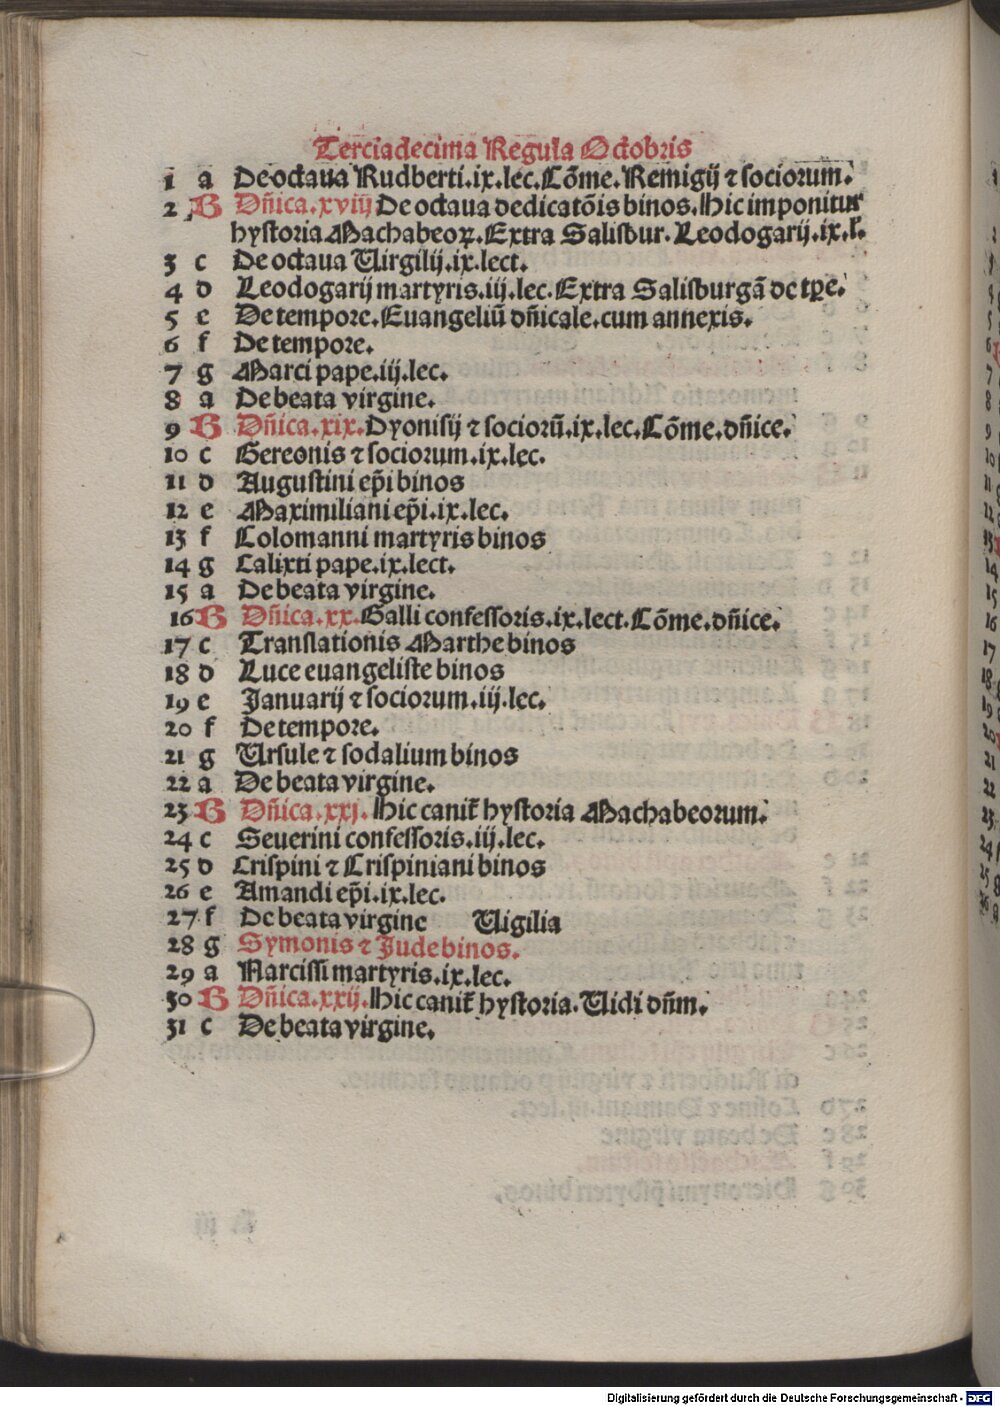 Terciadecima Regula Octobris
1 a De octaua Rudberti.ix.lec.Cōme.Remigij ⁊ sociorum.
2 B Dñica.xviij De octaua dedicatōis binos.Hic imponitur
hystoria Machabeoꝝ.Extra Salisbur.Leodogarij.ix.l.
3 c De octaua Uirgilij.ix.lect.
4 d Leodogarij martyris.iij.lec.Extra Salisburgā de tpe.
5 e De tempore.Euangeliū dñicale.cum annexis.
6 f De tempore.
7 g Marci pape.iij.lec.
8 a De beata virgine.
9 B Dñica.xix.Dyonisij ⁊ sociorū.ix.lec.Cōme.dñice.
10 c Gereonis ⁊ sociorum.ix.lec.
11 d Augustini ep̄i binos
12 e Maximiliani ep̄i.ix.lec.
13 f Colomanni martyris binos
14 g Calixti pape.ix.lect.
15 a De beata virgine.
16 B Dñica.xx.Galli confessoris.ix.lect.Cōme.dñice.
17 c Translationis Marthe binos
18 d Luce euangeliste binos
19 e Januarij ⁊ sociorum.iij.lec.
20 f De tempore.
21 g Ursule ⁊ sodalium binos
22 a De beata virgine.
23 B Dñica.xxj.Hic canit̄ hystoria Machabeorum.
24 c Seuerini confessoris.iij.lec.
25 d Crispini ⁊ Crispiniani binos
26 e Amandi ep̄i.ix.lec.
27 f De beata virgine Uigilia
28 g Symonis ⁊ Jude binos.
29 a Narcissi martyris.ix.lec.
30 B Dñica.xxij.Hic canit̄ hystoria.Uidi dñm.
31 c De beata virgine.
Digitalisierung gefördert durch die Deutsche Forschungsgemeinschaft - DFG